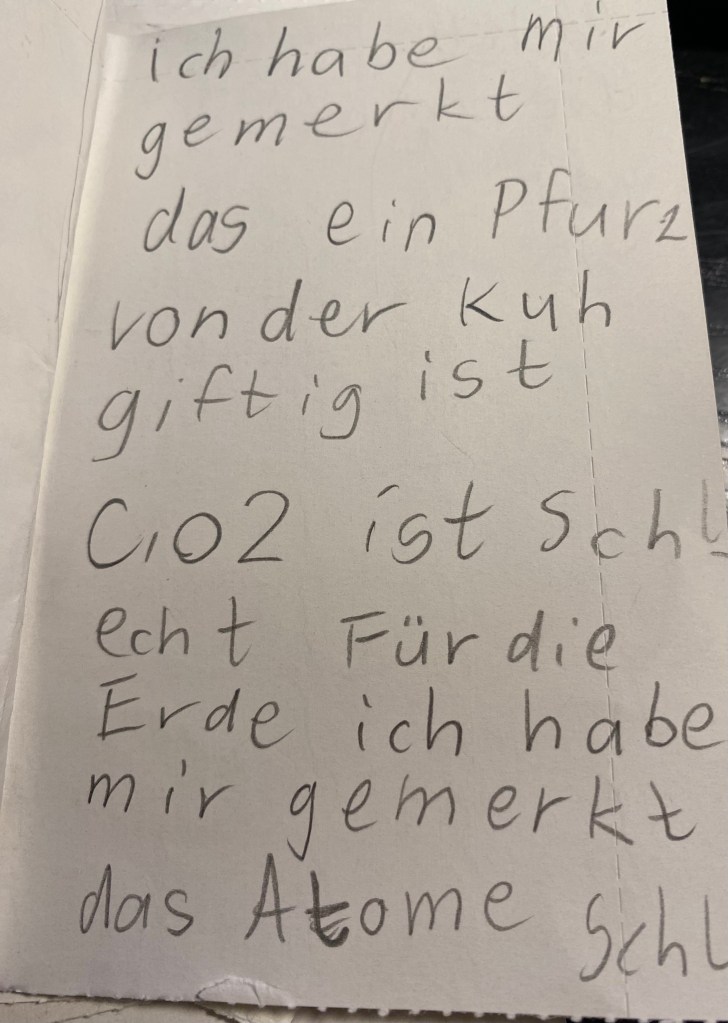 ich habe mir
gemerkt
das ein Pfurz
von der Kuh
giftig ist
C,O2 ist Schl
echt Für die
Erde ich habe
mir gemerkt
das Atome Schl